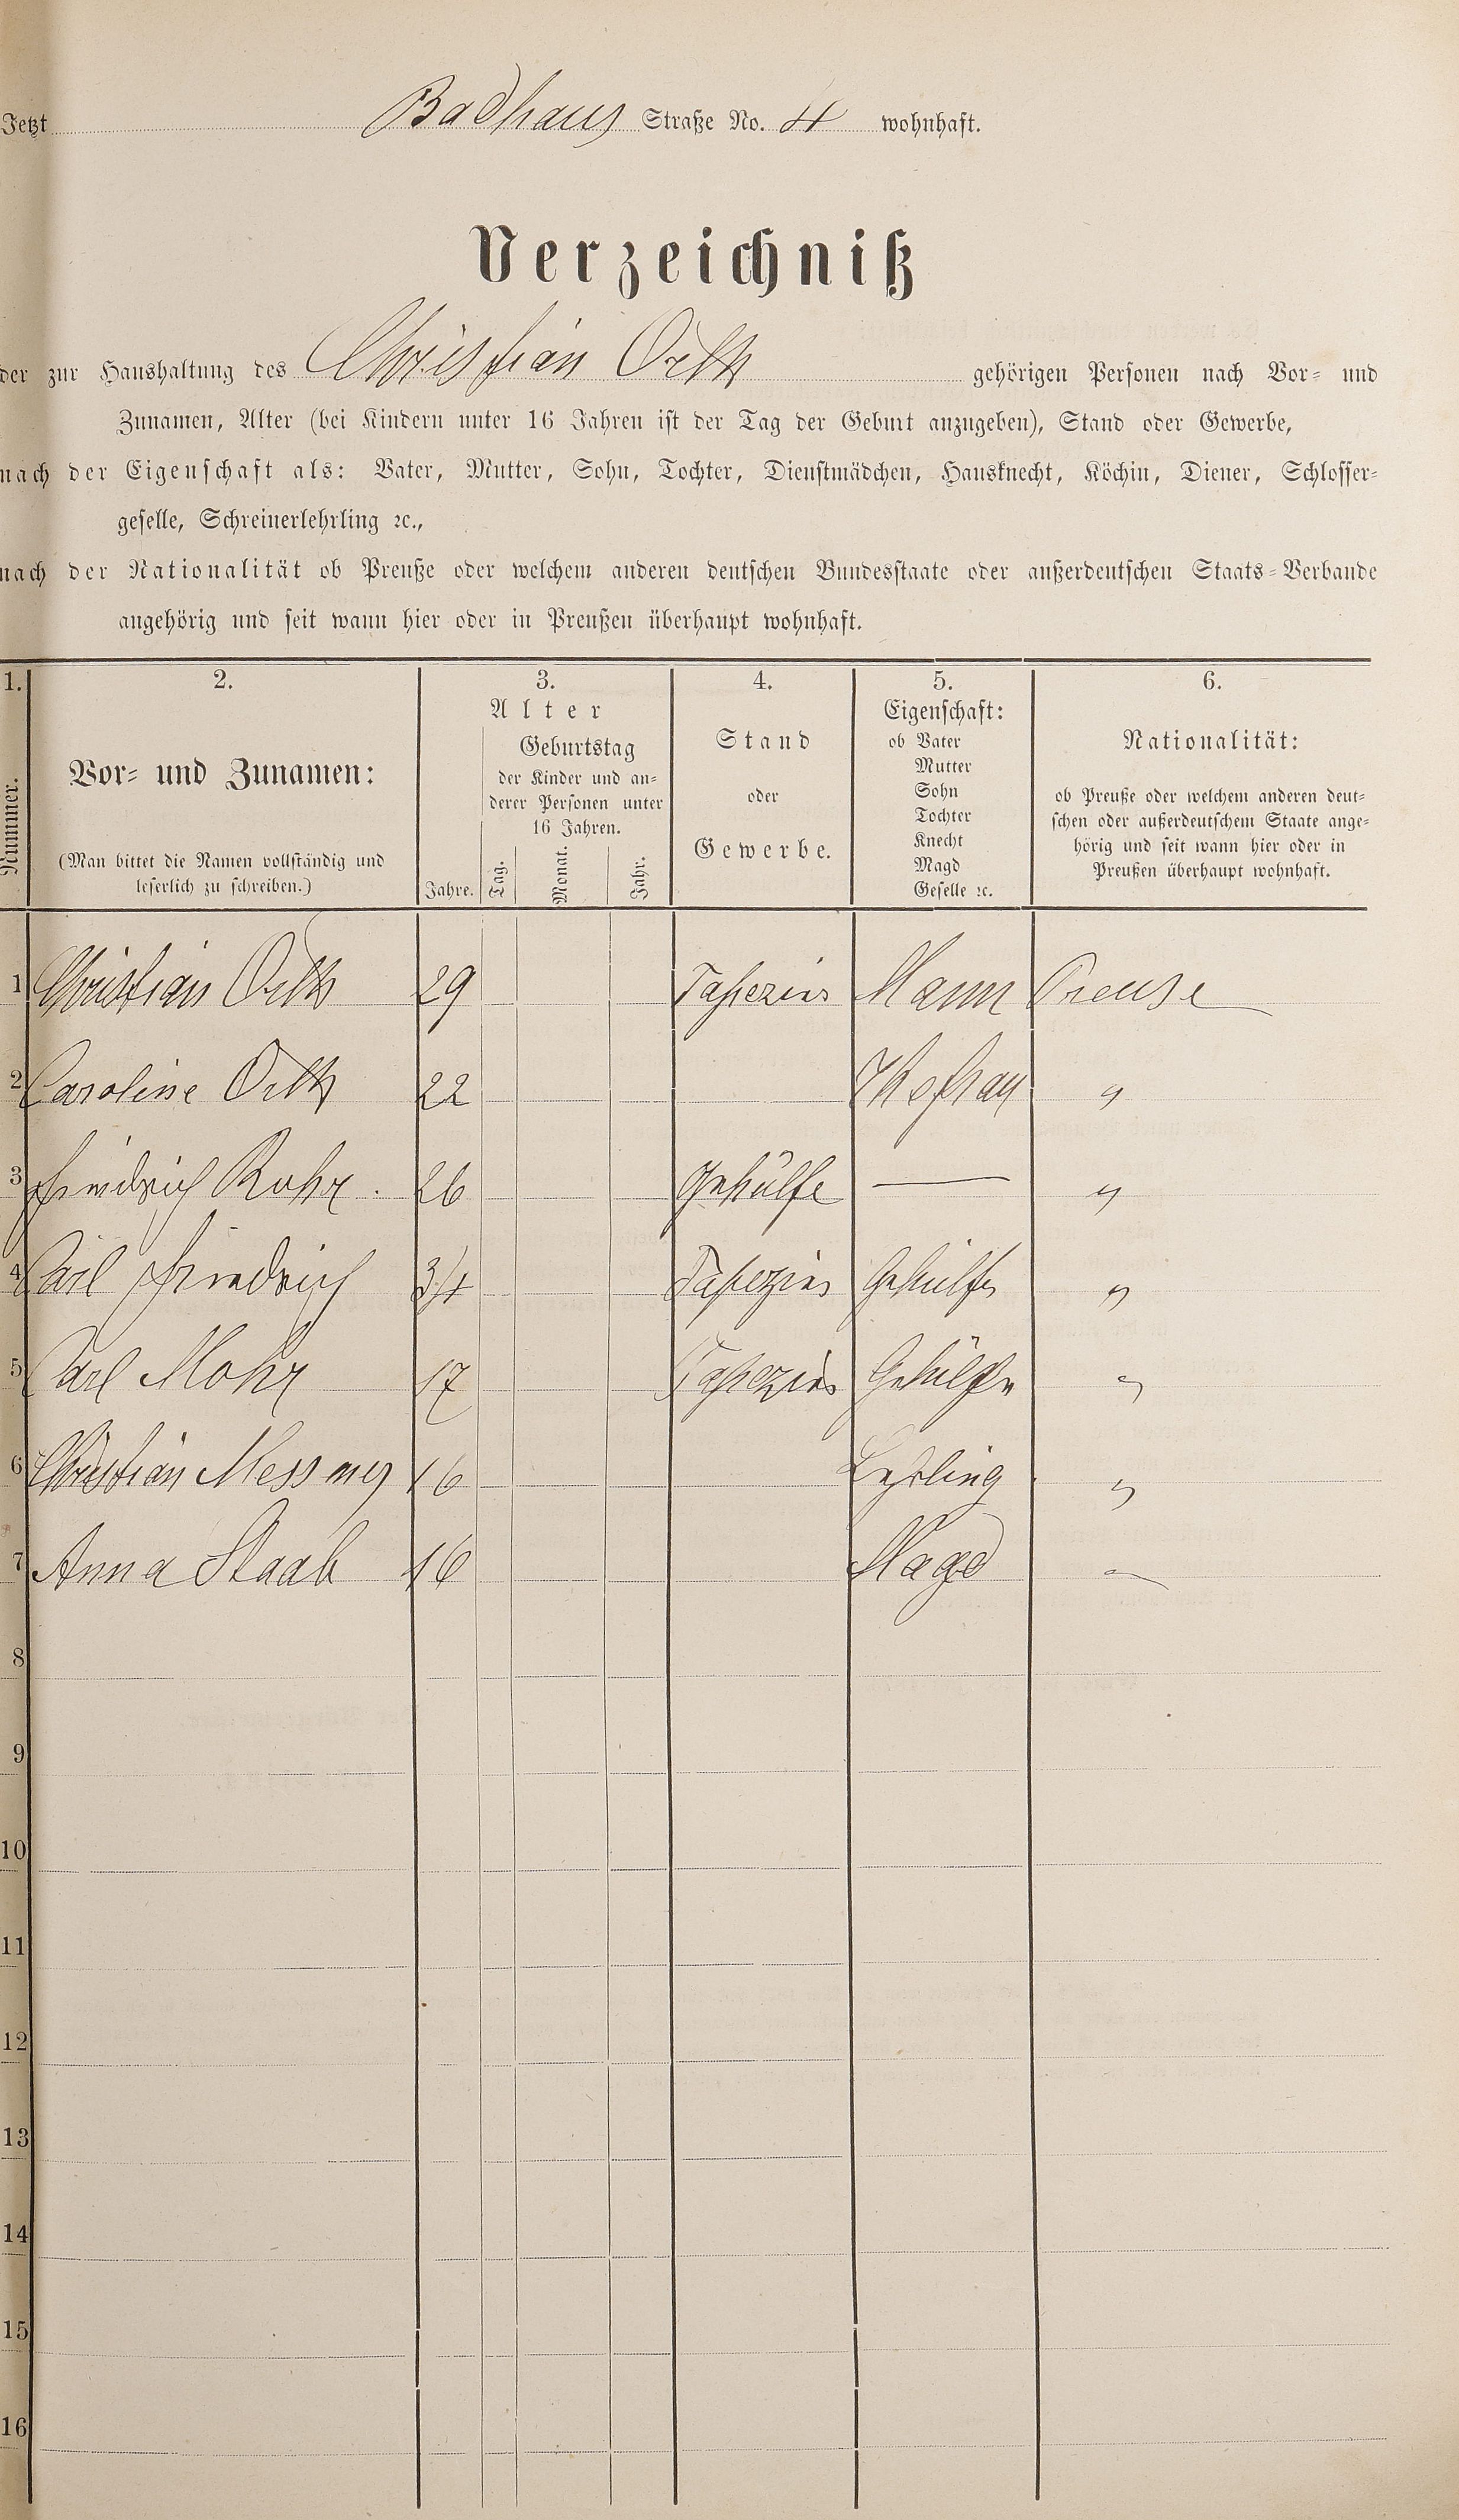 Jetzt Badhaus Straße No. 4 wohnhaft.
Verzeichniß
der zur Haushaltung des Christian Orth gehörigen Personen nach Vor- und
Zunamen, Alter (bei Kindern unter 16 Jahren ist der Tag der Geburt anzugeben), Stand oder Gewerbe,
nach der Eigenschaft als: Vater, Mutter, Sohn, Tochter, Dienstmädchen, Hausknecht, Köchin, Diener, Schlosser-
geselle, Schreinerlehrling ꝛc.,
nach der Nationalität ob Preuße oder welchem anderen deutschen Bundesstaate oder außerdeutschen Staats-Verbande
angehörig und seit wann hier oder in Preußen überhaupt wohnhaft.
1. 2. 3. 4. 5. 6.
Nummer.
Vor- und Zunamen:
(Man bittet die Namen vollständig und
leserlich zu schreiben.)
Alter
Jahre.
Geburtstag
der Kinder und an-
derer Personen unter
16 Jahren.
Tag. Monat. Jahr.
Stand
oder
Gewerbe.
Eigenschaft:
ob Vater
Mutter
Sohn
Tochter
Knecht
Magd
Geselle ꝛc.
Nationalität:
ob Preuße oder welchem anderen deut-
schen oder außerdeutschem Staate ange-
hörig und seit wann hier oder in
Preußen überhaupt wohnhaft.
1 Christian Orth 29 Tapezier Mann Preuse
2 Caroline Orth 22 "
3 Friedrich Rohr. 26 Gehülfe — "
4 Carl Friedrich 34 Tapezier Gehülfe "
5 Carl Mohr 17 Tapezier Gehülfe "
6 Christian Messmer 16 Lehrling "
7 Anna Staab 16 Magd "
8
9
10
11
12
13
14
15
16